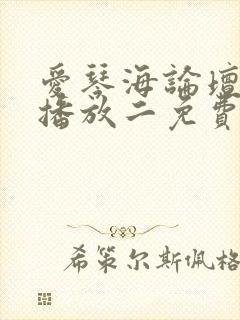 愛琴海論壇
播放二免費
希策尔斯佩格